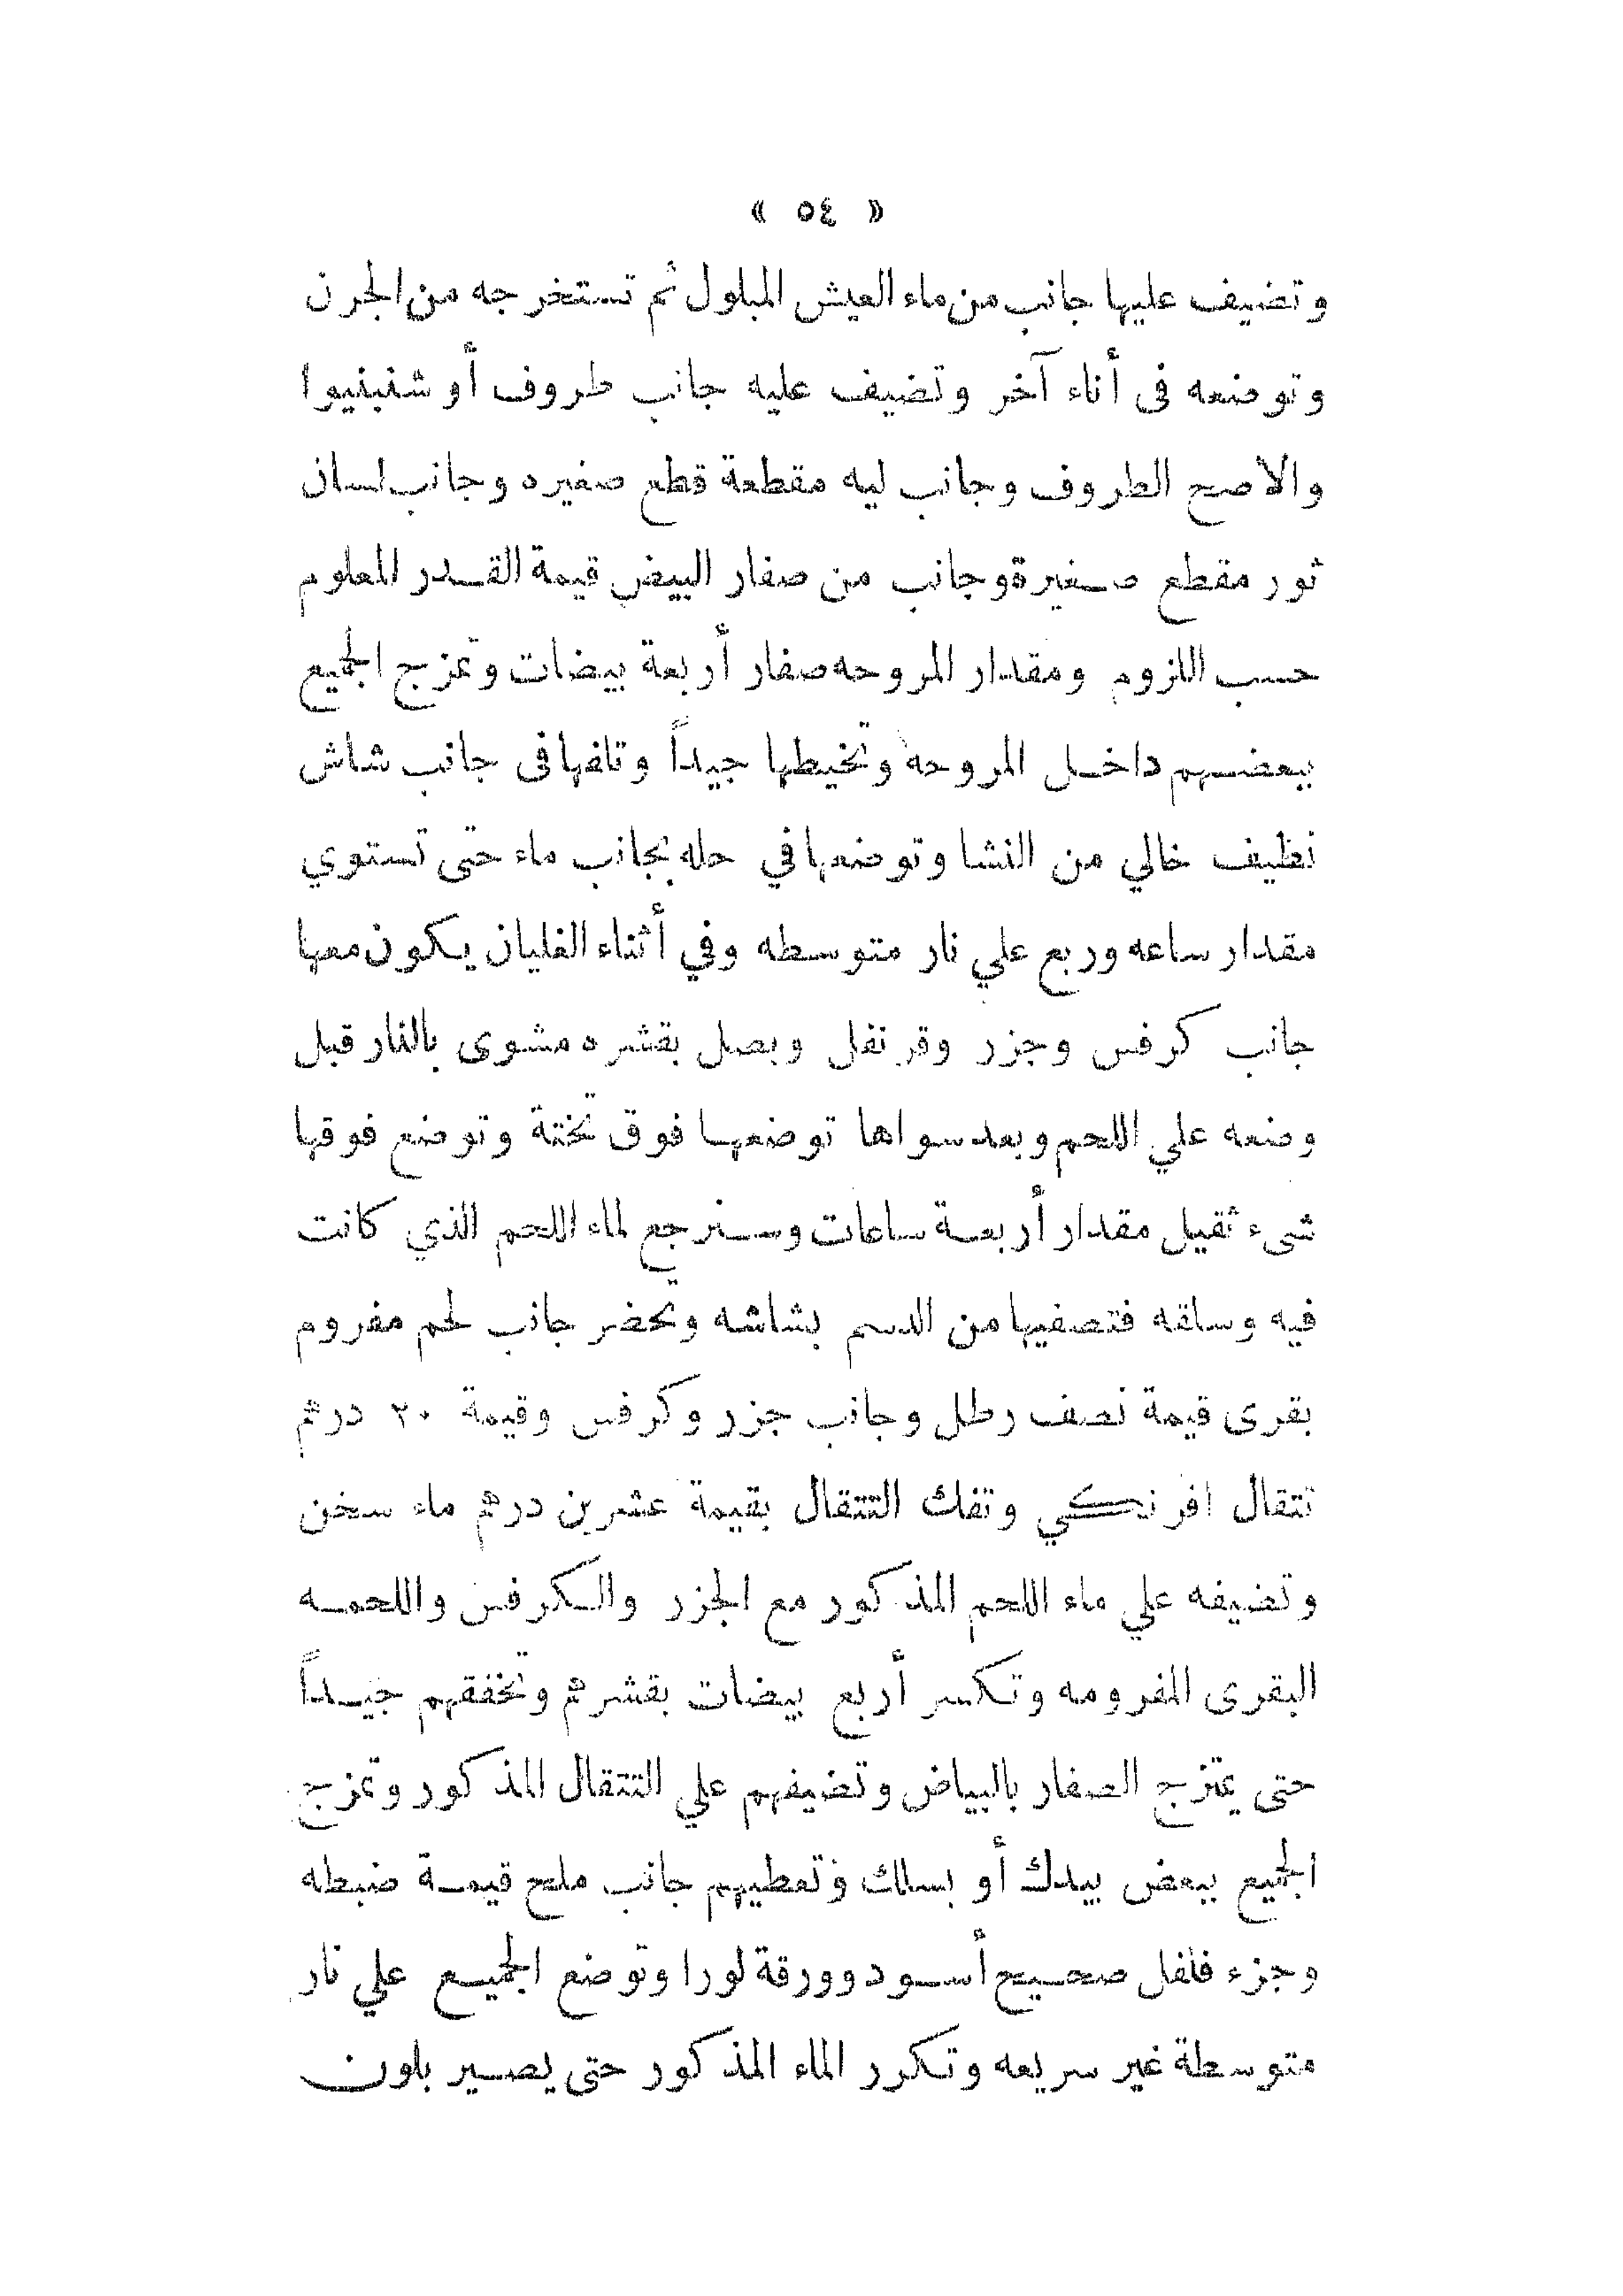 « ٥٤ »
وتضيف عليها جانب من ماء العيش المبلول ثم تستخرجه من الجرن
وتوضعه فى أناء آخر وتضيف عليه جانب طروف أو شنبنيوا
والاصح الطروف وجانب ليه مقطعة قطع صغيره وجانب لسان
ثور مقطع صغيرة وجانب من صفار البيض قيمة القدر المعلوم
حسب اللزوم ومقدار المروحه صفار أربعة بيضات وتمزج الجميع
ببعضهم داخل المروحه وتخيطها جيداً وتلفها فى جانب شاش
نظيف خالي من النشا وتوضعها في حله بجانب ماء حتى تستوي
مقدار ساعه وربع علي نار متوسطه وفي أثناء الغليان يكون معها
جانب كرفس وجزر وقرنفل وبصل بقشره مشوى بالنار قبل
وضعه علي اللحم وبعد سواها توضعها فوق تختة وتوضع فوقها
شىء ثقيل مقدار أربعة ساعات وسنرجع لماء اللحم الذي كانت
فيه وساقه فتصفيها من الدسم بشاشه وتحضر جانب لحم مفروم
بقرى قيمة نصف رطل وجانب جزر وكرفس وقيمة ٢٠ درهم
تتقال افرنكي وتفك التتقال بقيمة عشرين درهم ماء سخن
وتضيفه علي ماء اللحم المذكور مع الجزر والكرفس واللحمه
البقرى المفرومه وتكسر أربع بيضات بقشرهم وتخفقهم جيداً
حتى يمتزج الصفار بالبياض وتضيفهم علي التتقال المذكور وتمزج
الجميع ببعض بيدك أو بسلك وتعطيهم جانب ملح قيمة ضبطه
وجزء فلفل صحيح أسود وورقة لورا وتوضع الجميع علي نار
متوسطة غير سريعه وتكرر الماء المذكور حتى يصير بلون